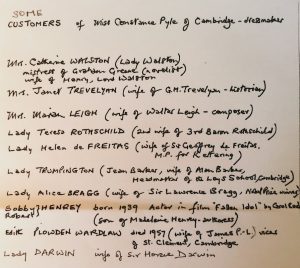 SOME
CUSTOMERS of Miss Constance Pyle of Cambridge - dressmaker
Mrs. Catherine WALSTON (Lady Walston)
mistress of Graham Greene (novelist)
wife of Henry, Lord Walston
Mrs. Janet TREVELYAN (wife of G.M. Trevelyan - historian)
Mrs. Marian LEIGH (wife of Walter Leigh - composer)
Lady Teresa ROTHSCHILD (2nd wife of 3rd Baron Rothschild)
Lady Helen de FREITAS (wife of Sir Geoffrey de Freitas,
M.P. for Kettering)
Lady TRUMPINGTON (Jean Barker, wife of Alan Barker,
Headmaster of the Leys School, Cambridge)
Lady Alice BRAGG (wife of Sir Lawrence Bragg, Nobel Prize winner)
Bobby} HENREY born 1939 Actor in film 'Fallen Idol' by Carol Reed
Robert} (son of Madeleine Henrey - authoress)
Edik PLOWDEN WARDLAW died 1957 (wife of James P-L) vicar
of St. Clement, Cambridge
Lady DARWIN wife of Sir Horace Darwin